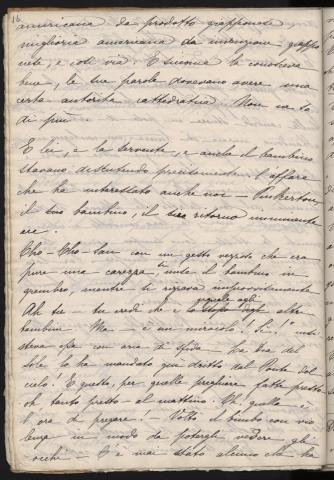 16.
americana da prodotto giapponese
miglioria americana da invenzione giappo
nese, e così via. E siccome la conosceva
bene, le sue parole dovevano avere una
certa autorità cattedratica. Non va la
di più
E lui, e la servente, e anche il bambino
stavano discutendo precisamente l'affare
che ha interessato anche noi – Pinkerton,
il suo bambino, il suo ritorno imminente
ecc.
Cho-Cho-San con un gesto vezzoso che era
pure una carezza, tenta il bambino in
grembo, mentre si
Ah tu – tu credi che è lo stesso degli altri
uguale agli
bambini – Ma – è un miracolo! Sì!" insi
steva essa con aria di sfida – La Dea del
Sole lo ha mandato qui dritto dal Ponte del
cielo! E questo, per quelle preghiere fatte presto
oh tanto presto al mattino. Oh, quella è
l'ora di pregare! – Voltò il bimbo con vio
lenza in modo da potergli vedere gli
occhi – C'è mai stato alcuno che ha